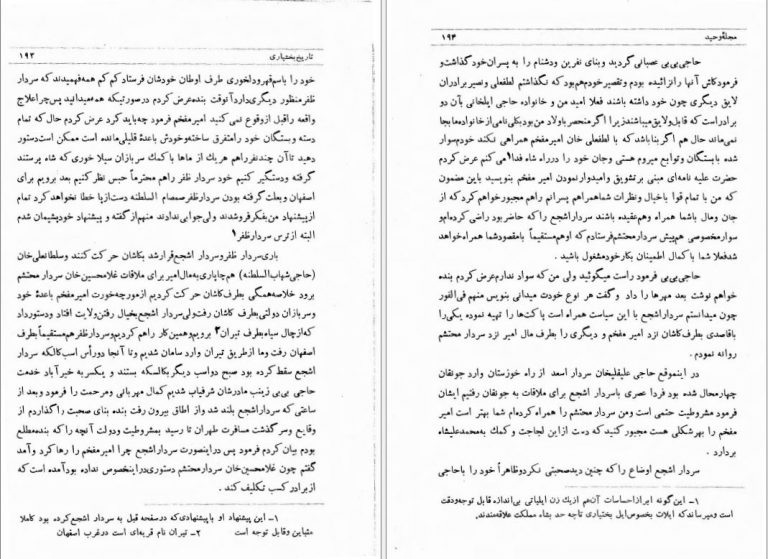 تاریخ بختیاری ۱۹۳
خود را باسم قهر ودلخوری طرف اوطان خودشان فرستاد کم کم همه فهمیدند که سردار
ظفر منظور دیگری دارد آنوقت بنده عرض کردم درصورتیکه همه میدانید پس چرا علاج
واقعه را قبل از وقوع نمی کنید امیر مفخم فرمود چه باید کرد عرض کردم حال که تمام
دسته وبستگان خود را متفرق ساخته وخودش باعدهٔ قلیلی مانده است ممکن است دستور
دهید تا آن چند نفر راهم هریک از ماها با کمک سربازان سیلاخوری که شاه پرستند
گرفته ودستگیر کنیم خود سردار ظفر راهم محترماً حبس نظر کنیم بعد برویم برای
اصفهان وبعلت گرفته بودن سردار ظفر صمصام السلطنه دست از پا خطا نخواهد کرد تمام
از پیشنهاد من بفکر فرو شدند ولی جوابی ندادند منهم از گفته و پیشنهاد خود پشیمان شدم
البته از ترس سردار ظفر۱
باری سردار ظفر وسردار اشجع قرار شد بکاشان حرکت کنند وسلطانعلی خان
(حاجی شهاب السلطنه) هم چاپاری به مال امیر برای ملاقات غلامحسین خان سردار محتشم
برود خلاصه همگی بطرف کاشان حرکت کردیم از مورچه خورت امیر مفخم باعدهٔ خود
وسربازان دولتی بطرف کاشان رفت ولی سردار اشجع بخیال رفتن ولایت افتاد ودستور داد
که از چال سیاه بطرف تیران۲ برویم وهمین کار راهم کردیم وسردار ظفر هم مستقیماً بطرف
اصفهان رفت وما از طریق تیران وارد سامان شدیم وتا آنجا دورأس اسب کالسکه سردار
اشجع سقط کرده بود صبح دواسب دیگر بکالسکه بستند و یکسر به خیر آباد خدمت
حاجی بی بی زینب مادرشان شرفیاب شدیم کمال مهربانی ومرحمت را فرمود وبعد از
ساعتی که سردار اشجع بلند شد واز اطاق بیرون رفت بنده بنای صحبت را گذاردم از
وقایع وسرگذشت مسافرت طهران تا رسید بمشروطیت ودولت آنچه را که بنده مطلع
بودم بیان کردم فرمود پس دراینصورت سردار اشجع چرا امیر مفخم را رها کرد وآمد
گفتم چون غلامحسین خان سردار محتشم دستوری دراینخصوص نداده بود آمده است که
از برادر کسب تکلیف کند .
۱- این پیشنهاد او با پیشنهادی که درصفحه قبل به سردار اشجع کرده بود کاملا
متباین وقابل توجه است ۲- تیران نام قریه ای است درغرب اصفهان
مجلهٔ وحید ۱۹۴
حاجی بی بی عصبانی گردید وبنای نفرین ودشنام را به پسران خود گذاشت و
فرمود کاش آنها را نزائیده بودم وتقصیر خودم هم بود که نگذاشتم لطفعلی ونصیر برادران
لایق دیگری چون خود داشته باشند فعلا امید من و خانواده حاجی ایلخانی بآن دو
برادر است که قابل ولایق میباشند زیرا اگر منحصر باولاد من بود بکلی نامی از خانواده ما بجا
نمی ماند حال هم اگر بنا باشد که با لطفعلی خان امیر مفخم همراهی نکند خودم سوار
شده با بستگان وتوابع میروم هستی وجان خود را در راه شاه فدا می کنم عرض کردم
حضرت علیه نامه ای مبنی بر تشویق وامیدوار نمودن امیر مفخم بنویسید باین مضمون
که من با تمام قوا باخیال ونظرات شما همراهم پسرانم راهم مجبور خواهم کرد که از
جان ومال باشما همراه وهم عقیده باشند سردار اشجع را که حاضر بود راضی کرده ام و
سوار مخصوصی هم پیش سردار محتشم فرستادم که او هم مستقیماً بامقصود شما همراه خواهد
شد فعلا شما با کمال اطمینان بکار خود مشغول باشید .
حاجی بی بی فرمود راست میگوئید ولی من که سواد ندارم عرض کردم بنده
خواهم نوشت بعد مهر ها را داد و گفت هر نوع خودت میدانی بنویس منهم فی الفور
چون میدانستم سردار اشجع با این سیاست همراه است پاکت ها را تهیه نموده یکی را
باقاصدی بطرف کاشان نزد امیر مفخم و دیگری را بطرف مال امیر نزد سردار محتشم
روانه نمودم .
در اینموقع حاجی علیقلیخان سردار اسعد از راه خوزستان وارد جونقان
چهارمحال شده بود فردا عصری باسردار اشجع برای ملاقات به جونقان رفتیم ایشان
فرمود مشروطیت حتمی است ومن سردار محتشم را همراه کرده ام شما بهتر است امیر
مفخم را بهرشکلی هست مجبور کنید که دست از این لجاجت و کمک به محمدعلیشاه
بردارد .
سردار اشجع اوضاع را که چنین دید صحبتی نکرد وظاهراً خود را باحاجی
۱- این گونه ابراز احساسات آن هم از یک زن ایلیاتی بی اندازه قابل توجه ودقت
است ومیرساند که ایلات بخصوص ایل بختیاری تاچه حد بشاه مملکت علاقه مندند.